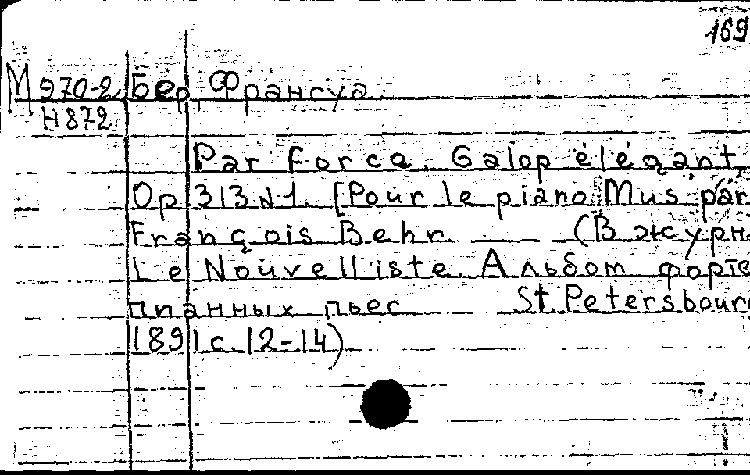 169
М 970-2 Бер, Франсуа.
Н872
Par force. Galop élégant,
Op. 313 N1. [Pour le piano. Mus. par
François Behr. (В журн.
Le Nouvelliste. Альбом форте
пианных пьес St. Petersbour
1891 с. 12-14)